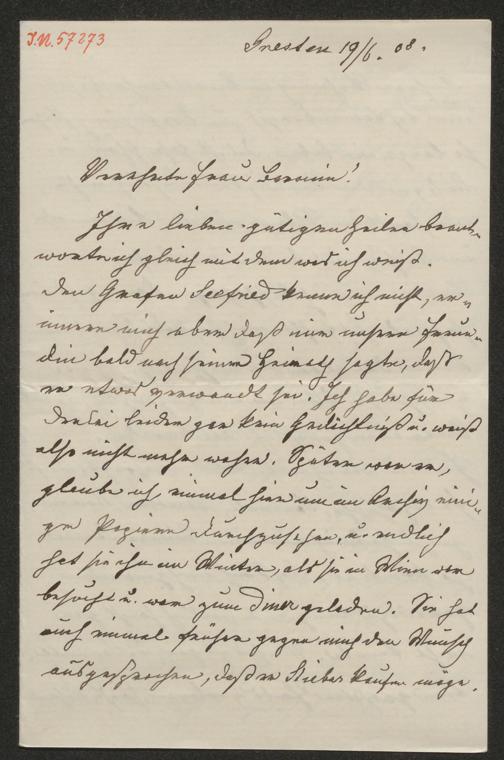 I.N. 57273
Gresten 19/6. 08.
Verehrte Frau Baronin!
Ihre lieben gütigen Zeilen beant-
worte ich gleich mit dem was ich weiß.
Den Grafen Seefried kenne ich nicht, er-
innere mich aber daß mir unsere Freun-
din bald nach seiner Heirath sagte, daß
er etwas verwandt sei. Ich habe für
derlei leider gar kein Gedächtniß u. weiß
also nicht mehr woher. Später war er,
glaube ich, einmal hier um im Archiv eini-
ge Papiere durchzusehen, u. endlich
hat sie ihn im Winter, als sie in Wien war
besucht u. war zum Diner geladen. Sie hat
auch einmal früher gegen mich den Wunsch
ausgesprochen, daß er Stiebar kaufen möge.